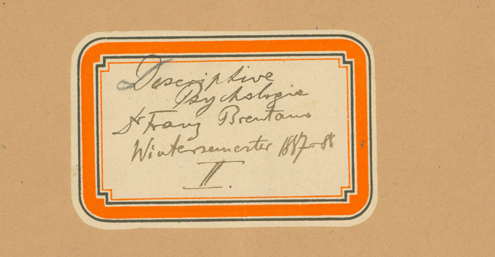 Descriptive
Psychologie
Dr Franz Brentano
Wintersemester 1887-88
II.